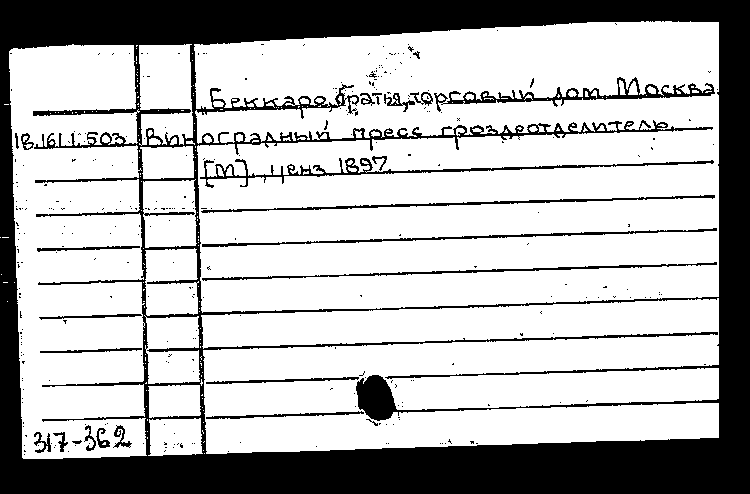 „Беккаро, братья, торговый дом. Москва.
18.161.1.503. Виноградный пресс гроздеотделитель.
[М]., ценз 1897.
317-362